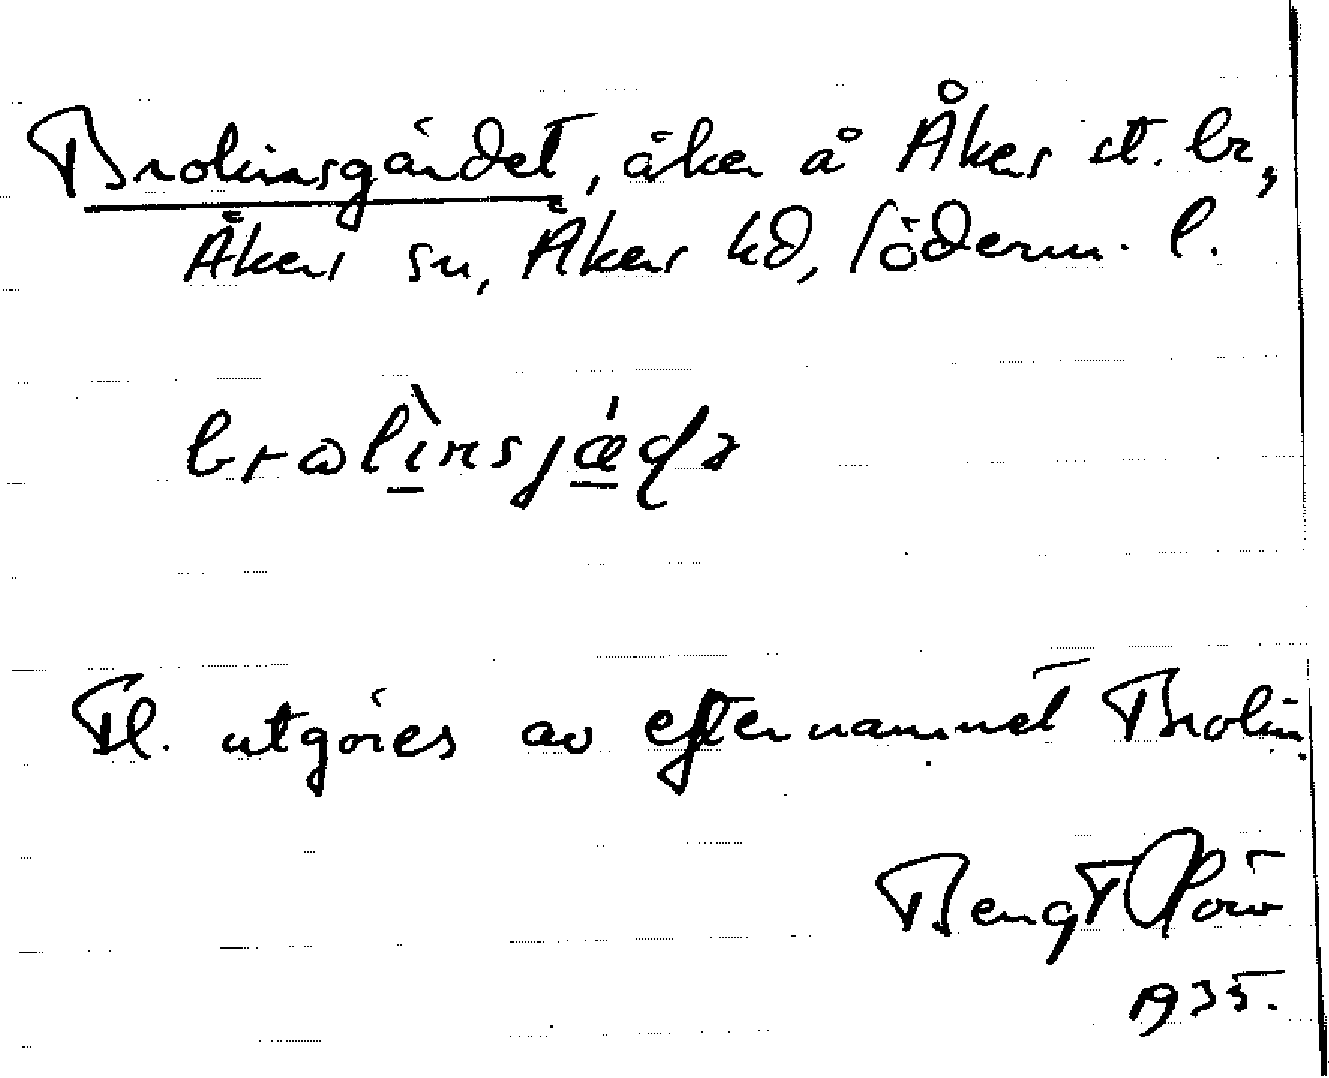 Brolinsgärdet, åker å Åkers st. br,
Åkers sn, Åkers hd, Söderm. l.
brωlìnsjǽɖə
Fl. utgöres av efternamnet Brolin.
Bengt
1935.